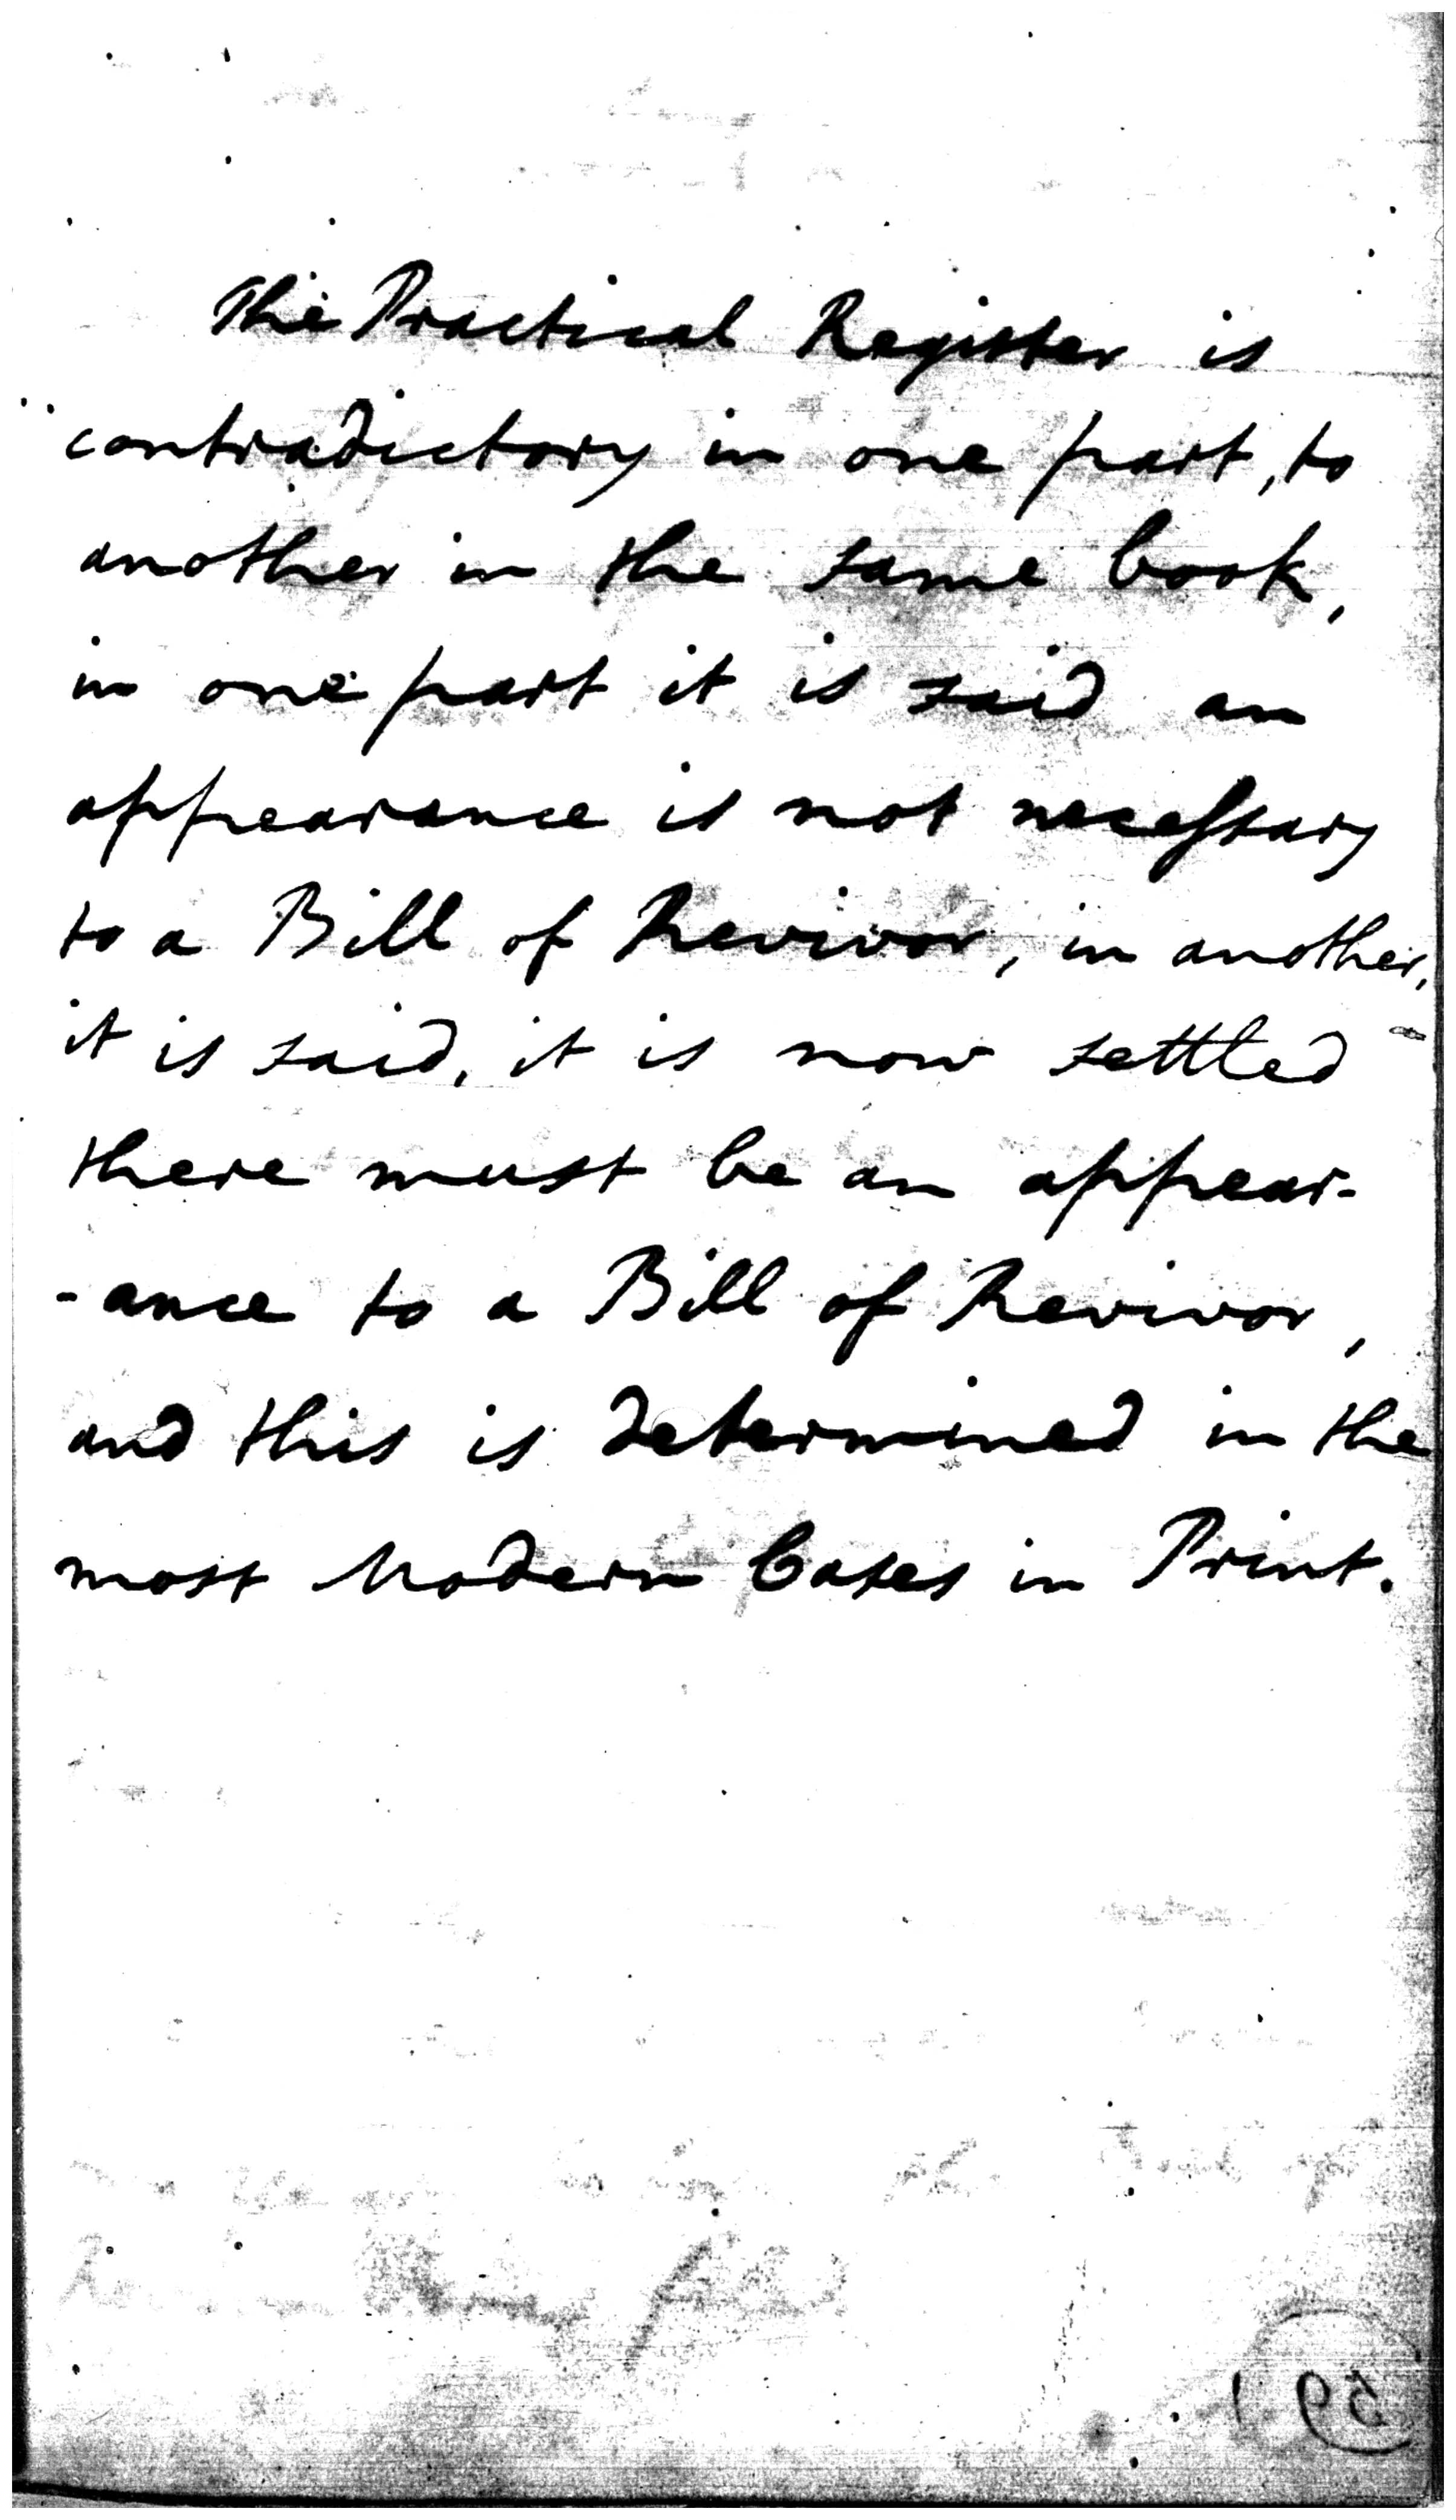 The Practical Register is
contradictory in one part, to
another in the same book,
in one part it is said an
appearance is not necessary
to a Bill of Revivor, in another,
it is said, it is now settled
there must be an appear-
-ance to a Bill of Revivor,
and this is determined in the
most Modern Cases in Print.